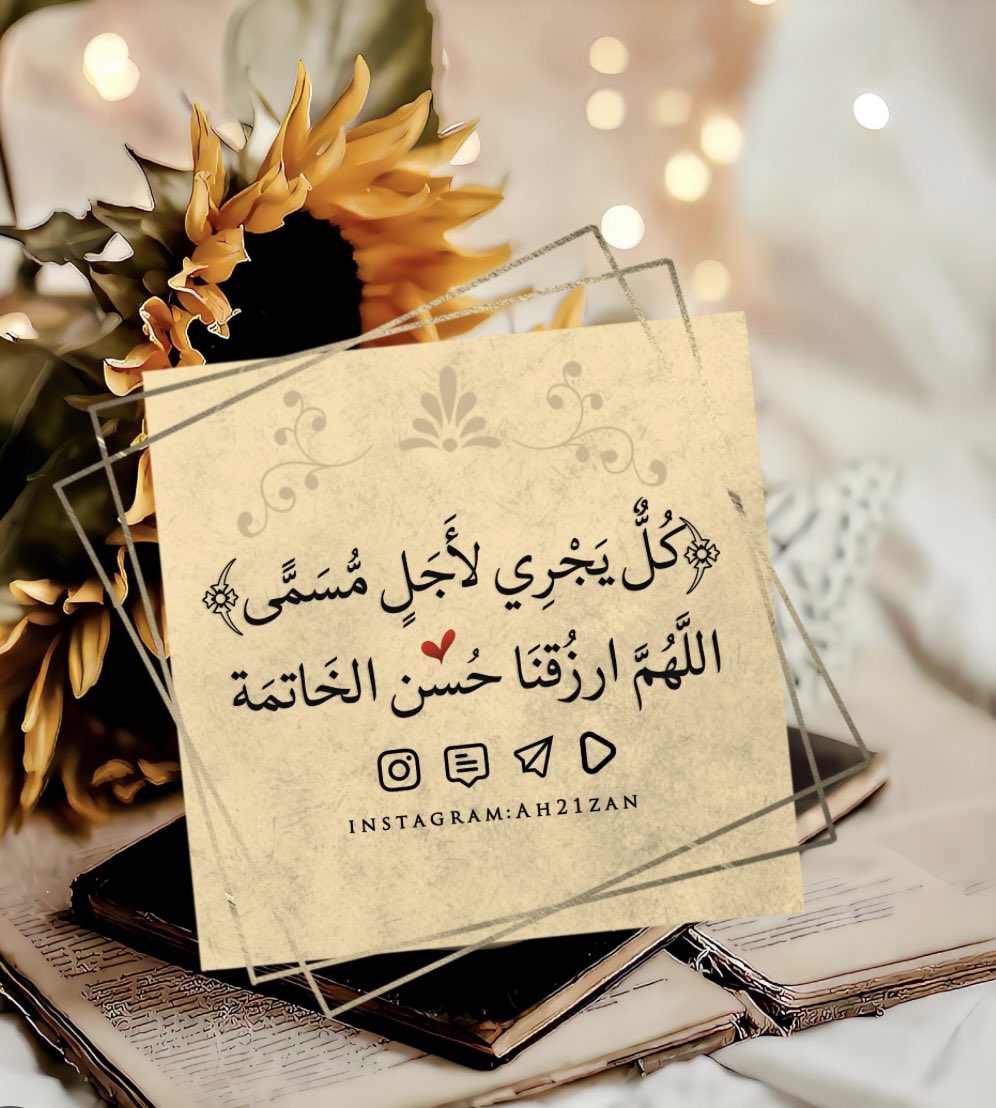 ﴿كُلٌّ يَجْرِي لأَجَلٍ مُّسَمًّى﴾
اللَّهُمَّ ارزُقنَا حُسن الخَاتمَة
INSTAGRAM:AH21ZAN